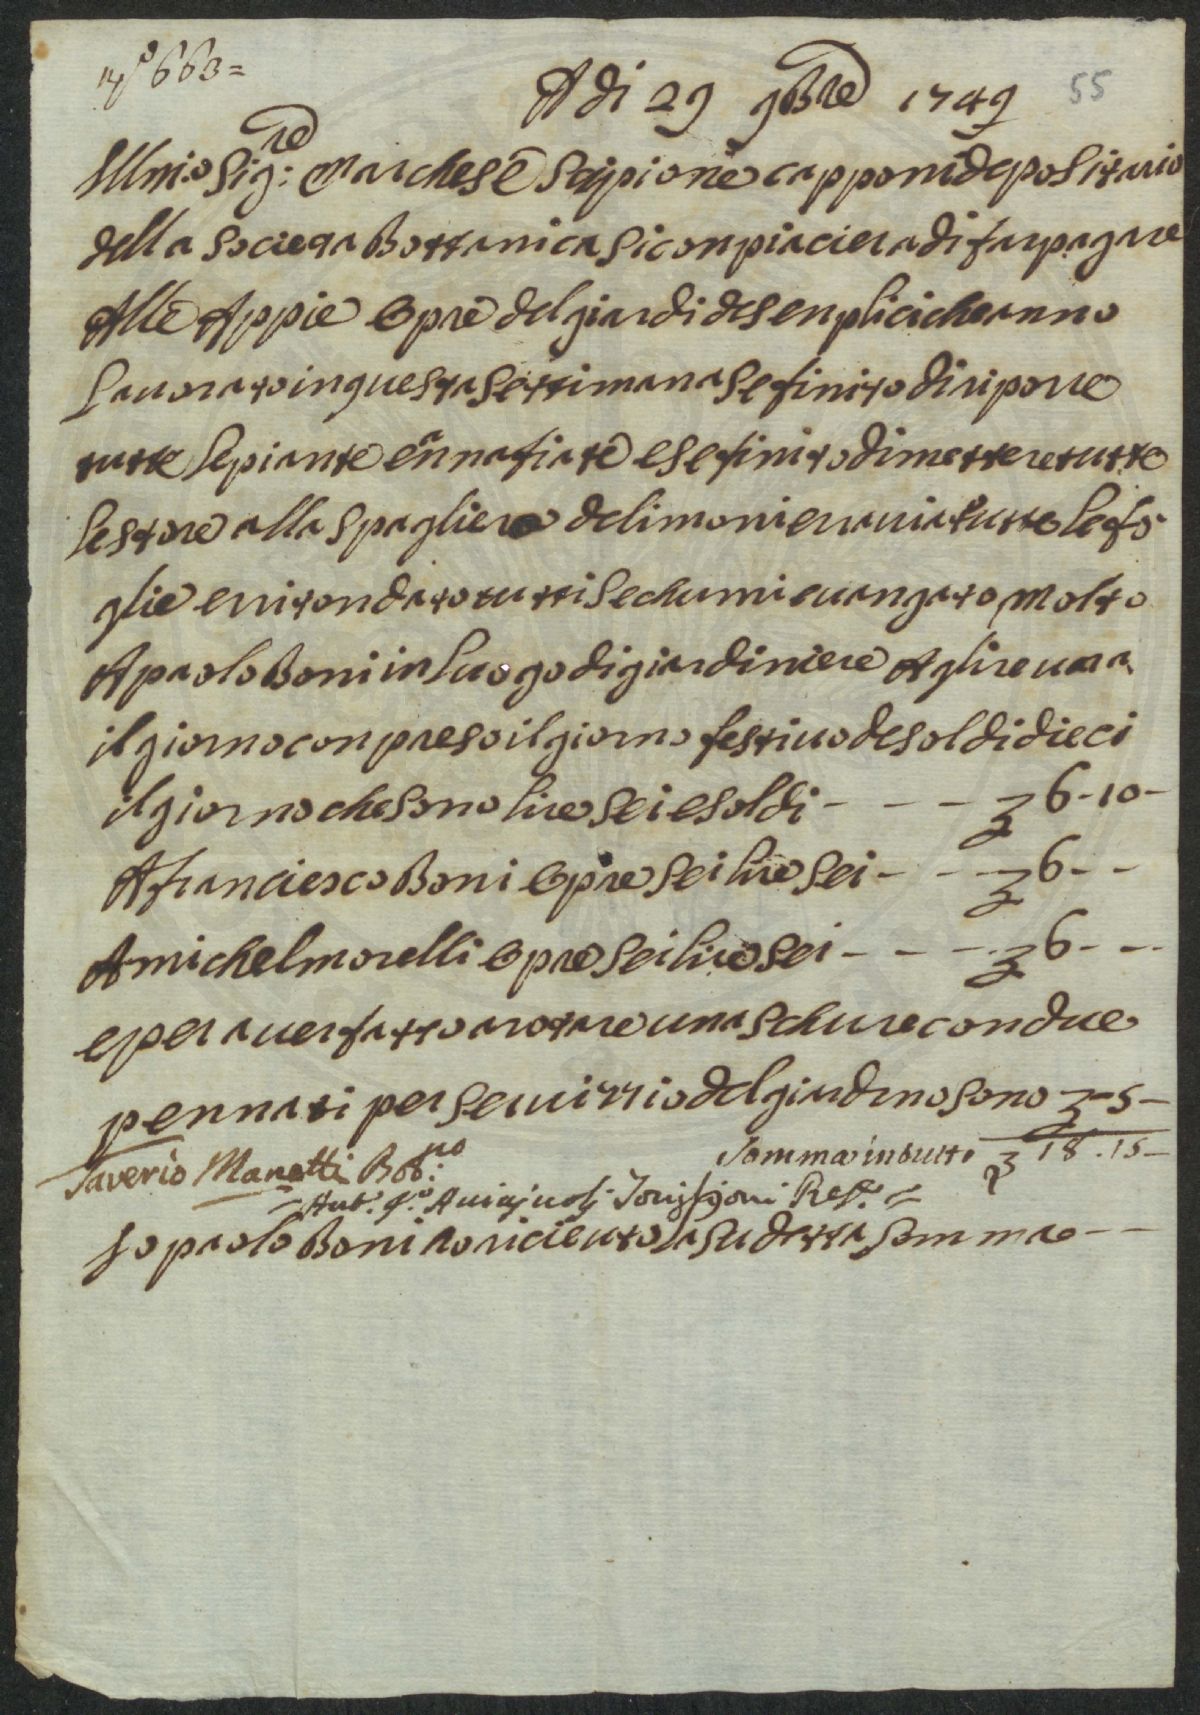 N° 663=
A di 29 9bre 1749 55
Illmo Sig:re Marchese Scipione capponi depositario
della Societa Bottanica Si conpiaciera di far pagare
Alle Appie Opre del giardi de Senplici che anno
Lauorato in questa Settimana Se finito di riporre
tutte Le piante e nnafiate e Se finito di mettere tutte
Le store alla Spagliera de limoni e rauia tutte Le fo
glie e ritondato tutti Lechumi e uangato molto
A paolo Boni in Luogo di giardiniere A Lire una
il giorno conpreso il giorno festiuo de soldi dieci
il giorno che Sono Lire Sei e Soldi - - - 6-10-
A franciesco Boni Opre Sei Lire Sei - - - 6 - -
A michel morelli Opre Sei Lire Sei - - - 6 - -
e per auer fatto arotare una Schure con due
pennati per Seruizzio del giardino Sono - 5 -
Somma in tutto 18.15-
Saverio Manetti
Io paolo Boni o riceuto La Sudetta Somma - -